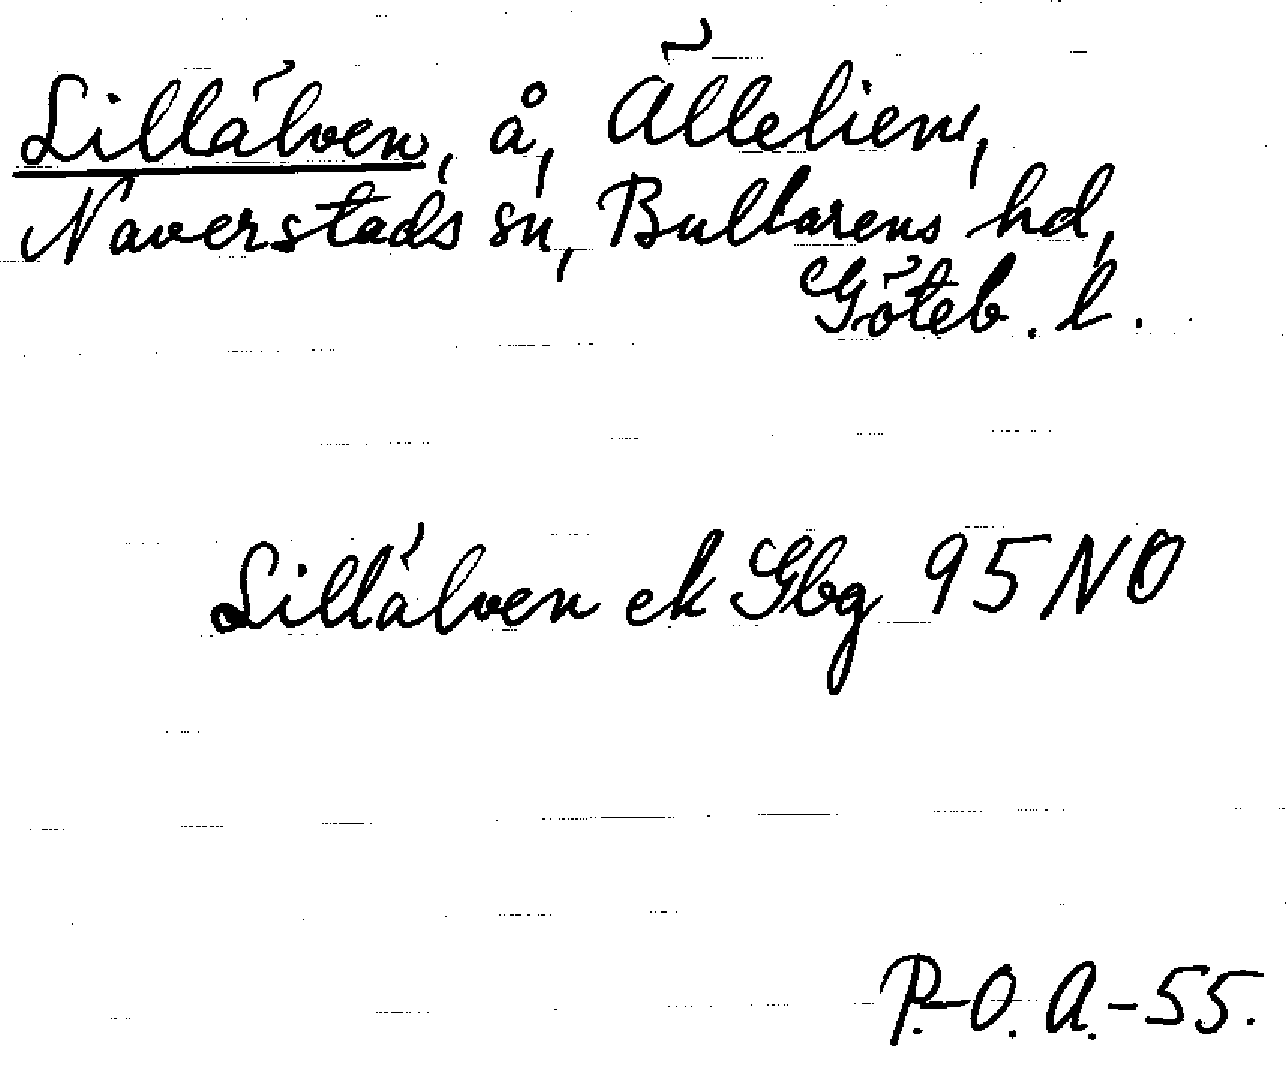 Lillälven, å, Ällelien,
Naverstads sn, Bullarens hd,
Göteb. l.
Lillälven ek Gbg 95 NO
P.-O. A.-55.